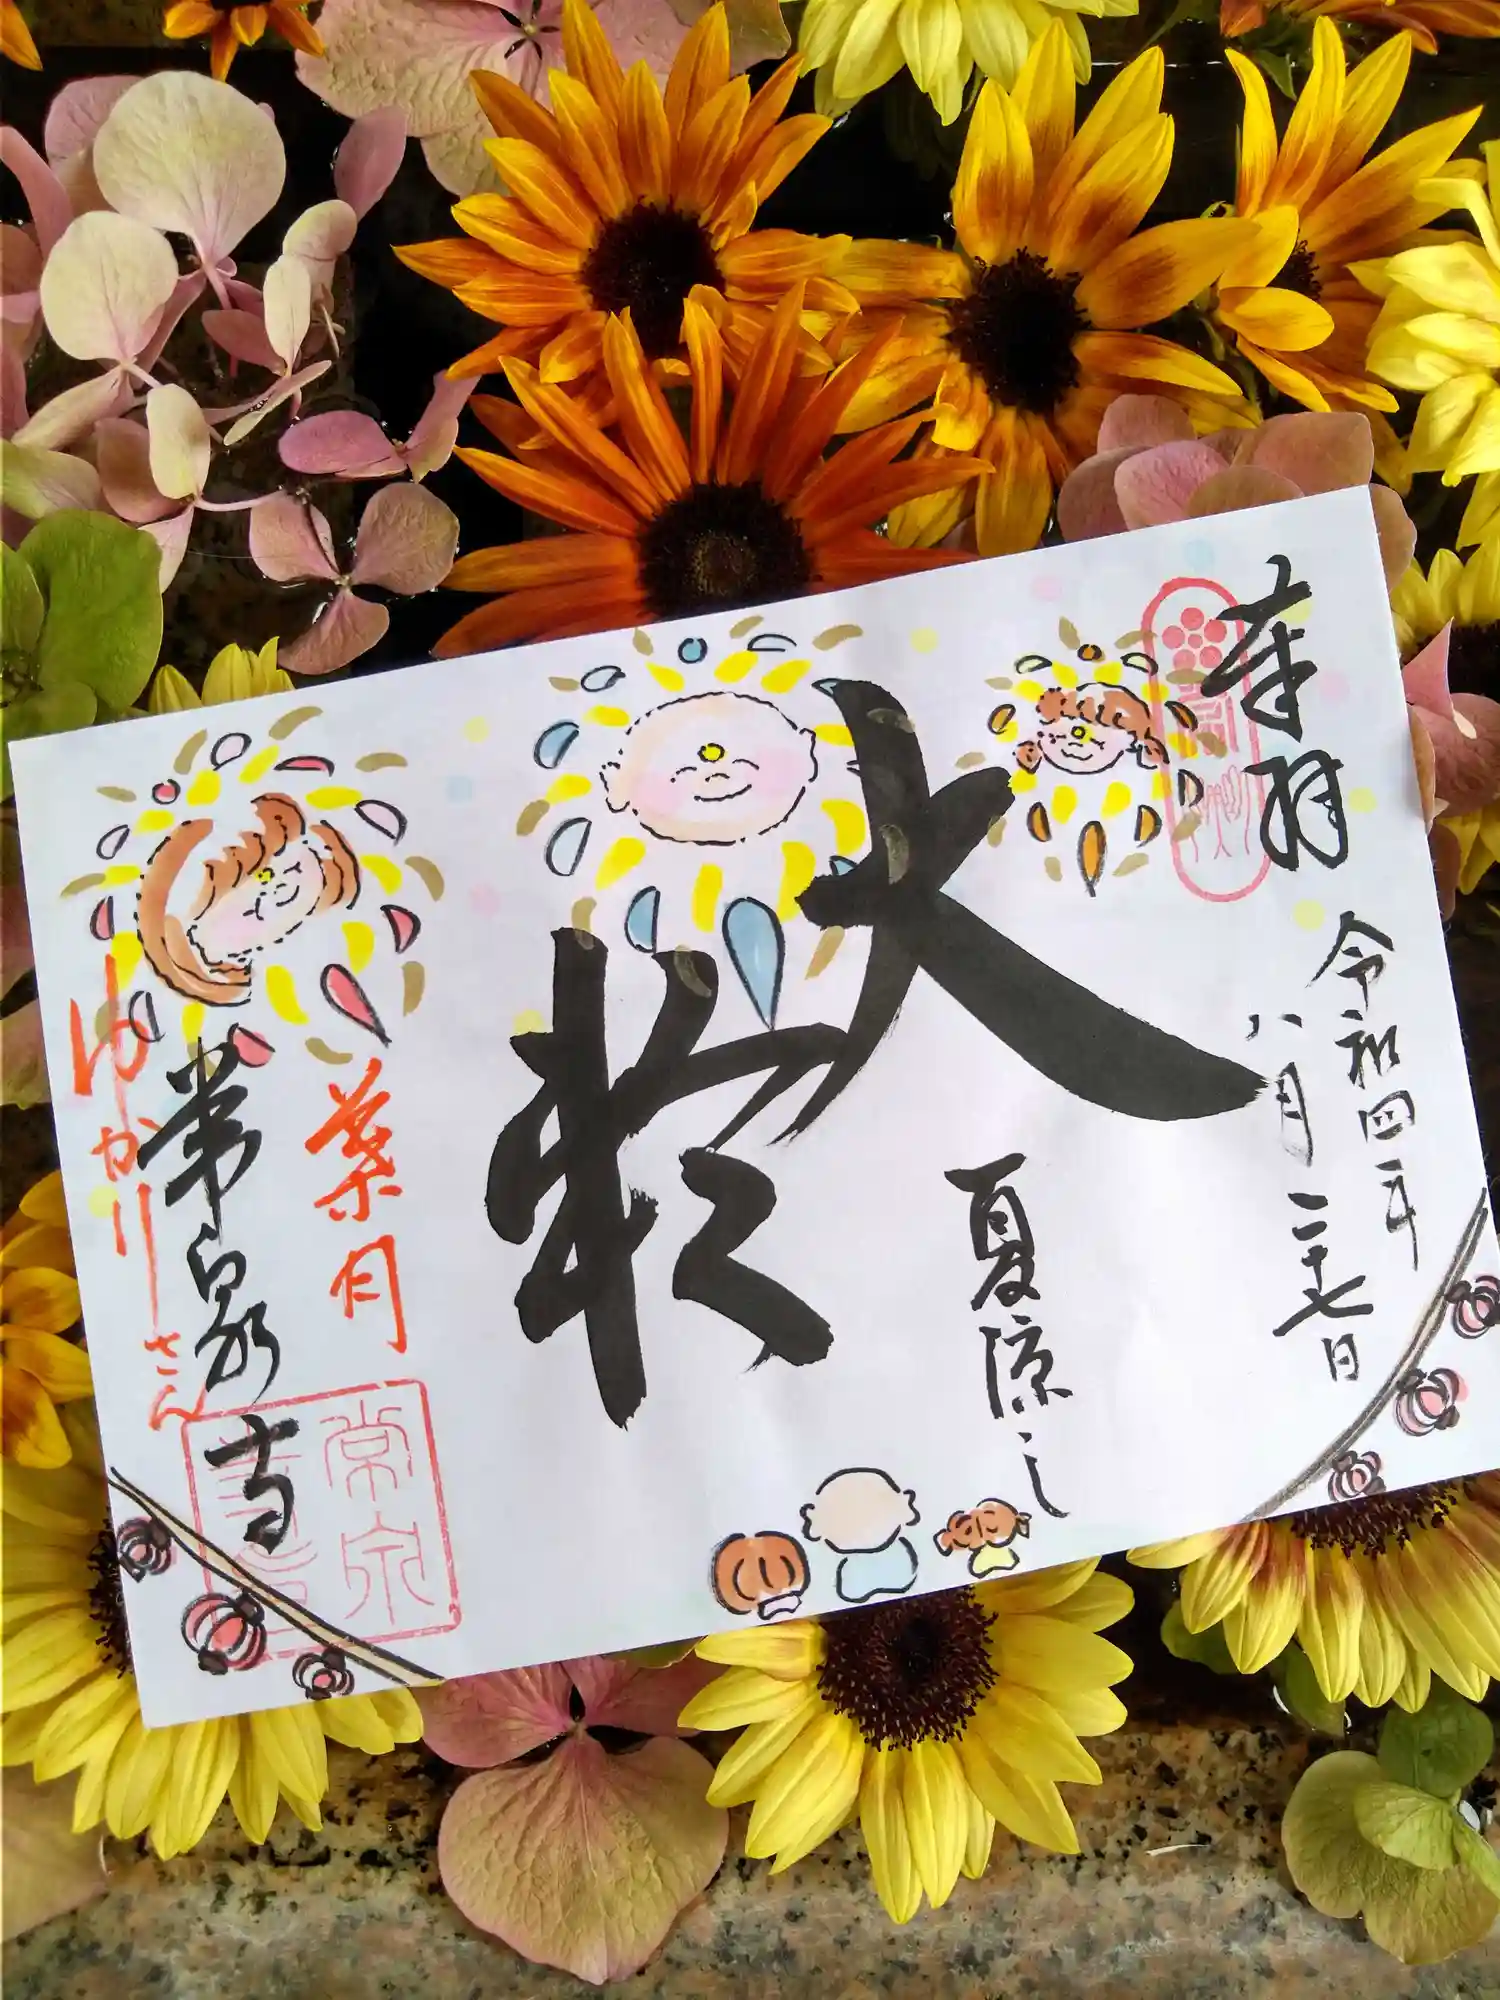 奉拝
令和四年
八月二十七日
大
夏涼し
葉月
常泉寺
ゆかりさん
常泉